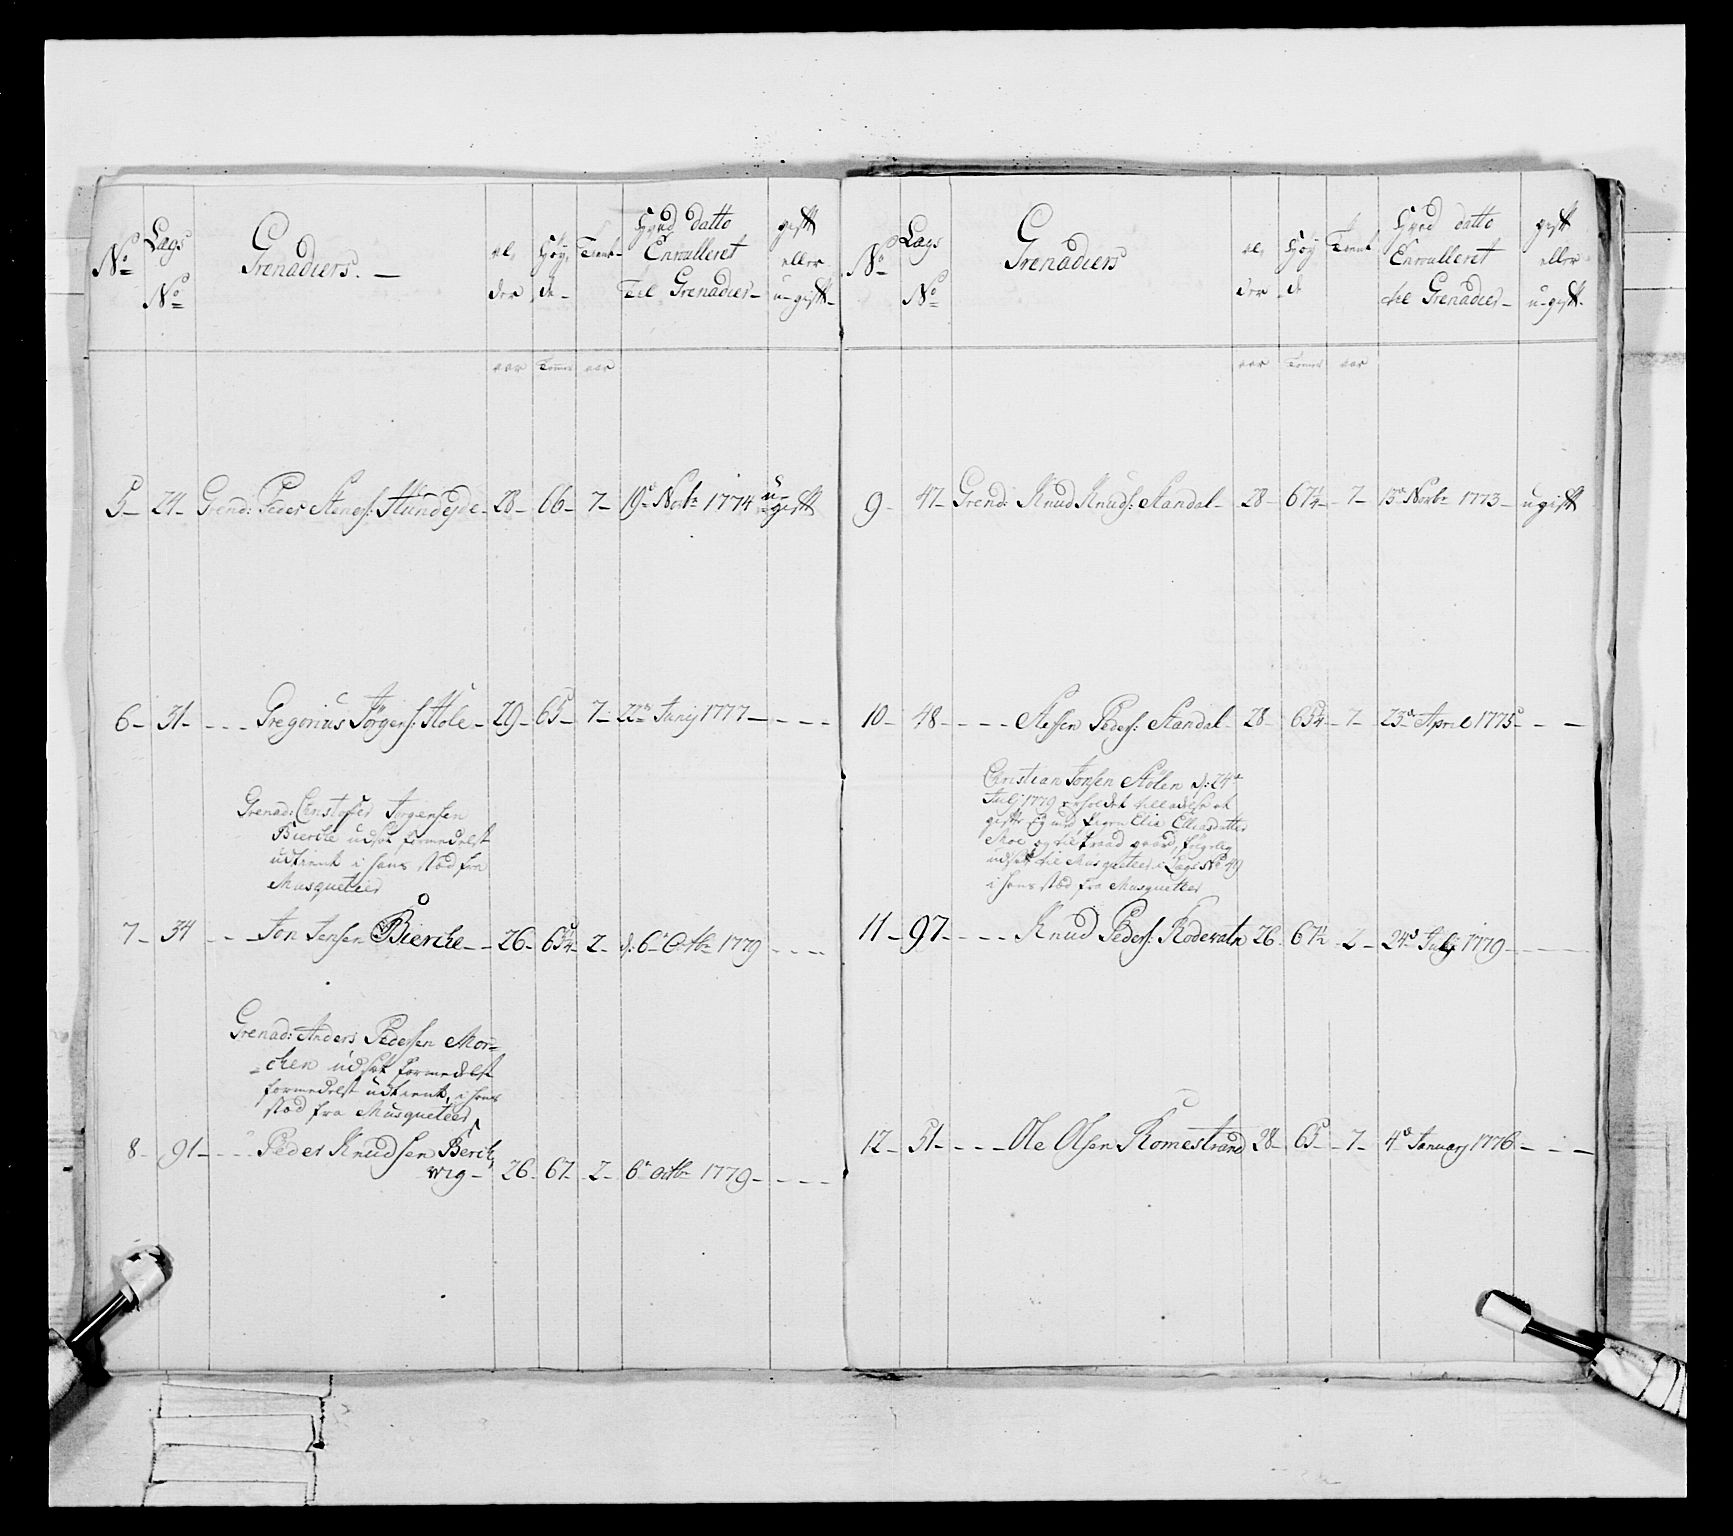 No Lags No Grenadiers. al, der Høy, de Tient Hvad datto Enroulleret Til Grenadier gift eller u-gift
aar Tommer aar
5 24 Grend: Peder Stenes: Hundejde 28 66 7 19de Novbr 1774 u-gift
6 31 Gregorius Jørgens: Hole 29 65 7 22de Junij 1777
Grenad: Christofer Jørgensen
Bierche udsat formedelst
udtient i hans stæd fra
Musqueteer
7 34 Jon Jensen Bierche 26 65¾ 2 d: 6te Octbr 1779
Grenad: Anders Pedersen Mor-
-chen udsat formedelst
formedelst udtient, i hans
stæd fra Musqueteer
8 91 Peder Knudsen Berit,
wig 26 67 2 6te Octbr 1779
No Lags No Grenadiers al, der Høy de Tient Hvad datto Enroulleret til Grenadier gift eller u-gift
aar Tommer aar
9 47 Grend: Knud Knuds: Standal 28 67¼ 7 13de Novbr 1773 ugift
10 48 Steffen Peders: Standal 28 65¼ 7 23de April 1775
Christian Jonsen Stølen d: 24de
Julj 1779 erholdet tilladelse at
gifte sig med Pigen Elie Eliasdatter
Moe og
udsat til Musqueteer i Lags No 49
i hans stæd fra Musqueteer
11 97 Knud Peders: Kodevaln 26 67½ 2 24de Julj 1779
12 51 Ole Olsen Romestrand 28 65 7 4de January 1776